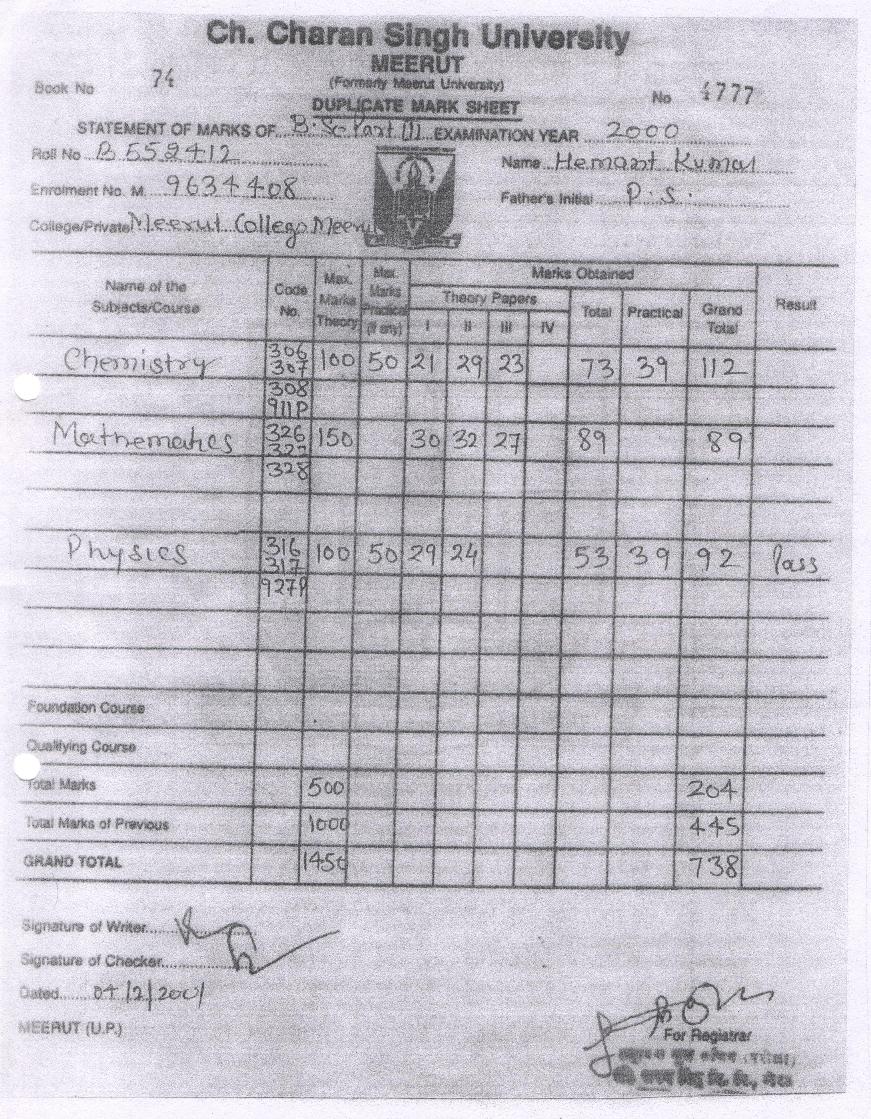 Ch. Charan Singh University
MEERUT
(Formerly Meerut University)
Book No 74
No 4777
DUPLICATE MARK SHEET
STATEMENT OF MARKS OF B.Sc Part III EXAMINATION YEAR 2000
Roll No B 552412 Name Hemant Kumar
Enrolment No. M. 9634408 Father's Initial P. S.
College/Private Meerut College Meerut
Name of the Subjects/Course Code No. Max. Marks Theory Max. Marks Practical (if any) Marks Obtained Result
Theory Papers Total Practical Grand Total
I II III IV
Chemistry 306 100 50 21 29 23 73 39 112
307
308
911P
Mathematics 326 150 30 32 27 89 89
327
328
Physics 316 100 50 29 24 53 39 92 Pass
317
927P
Foundation Course
Qualifying Course
Total Marks 500 204
Total Marks of Previous 1000 445
GRAND TOTAL 1450 738
Signature of Writer
Signature of Checker
Dated 04/2/2001
MEERUT (U.P.)
For Registrar